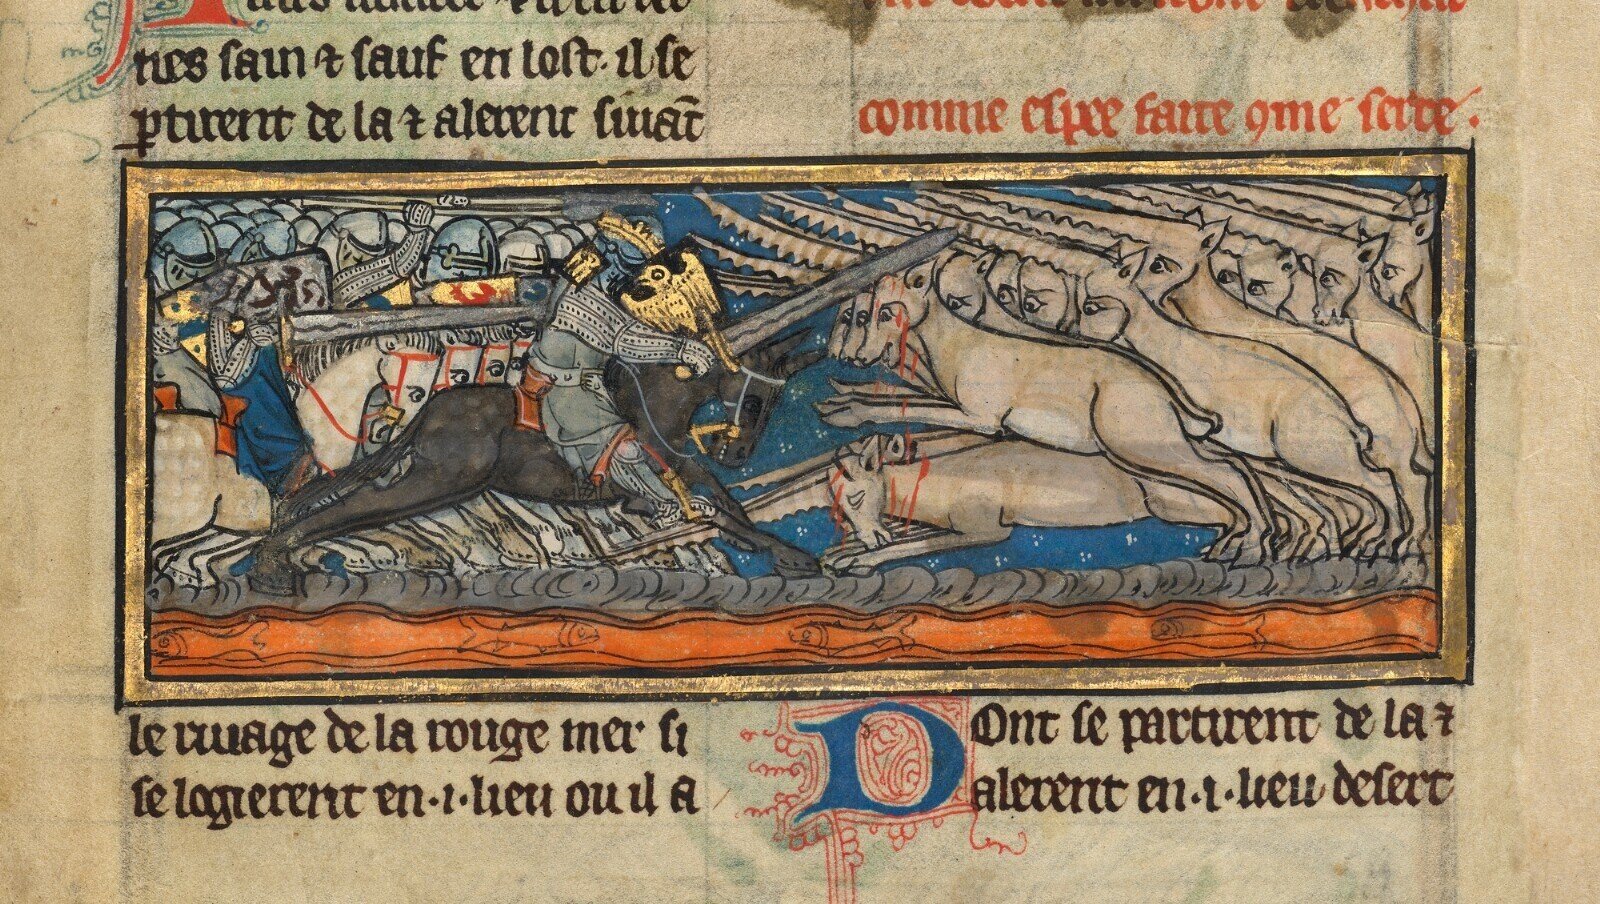 nes sain ⁊ sauf en lost. il se
ꝑtirent de la ⁊ alerent siuāt
le riuage de la rouge mer si
se logierent en .i. lieu ou il a
comme espee faite ꝯme serre.
DOnt se partirent de la ⁊
alerent en .i. lieu desert